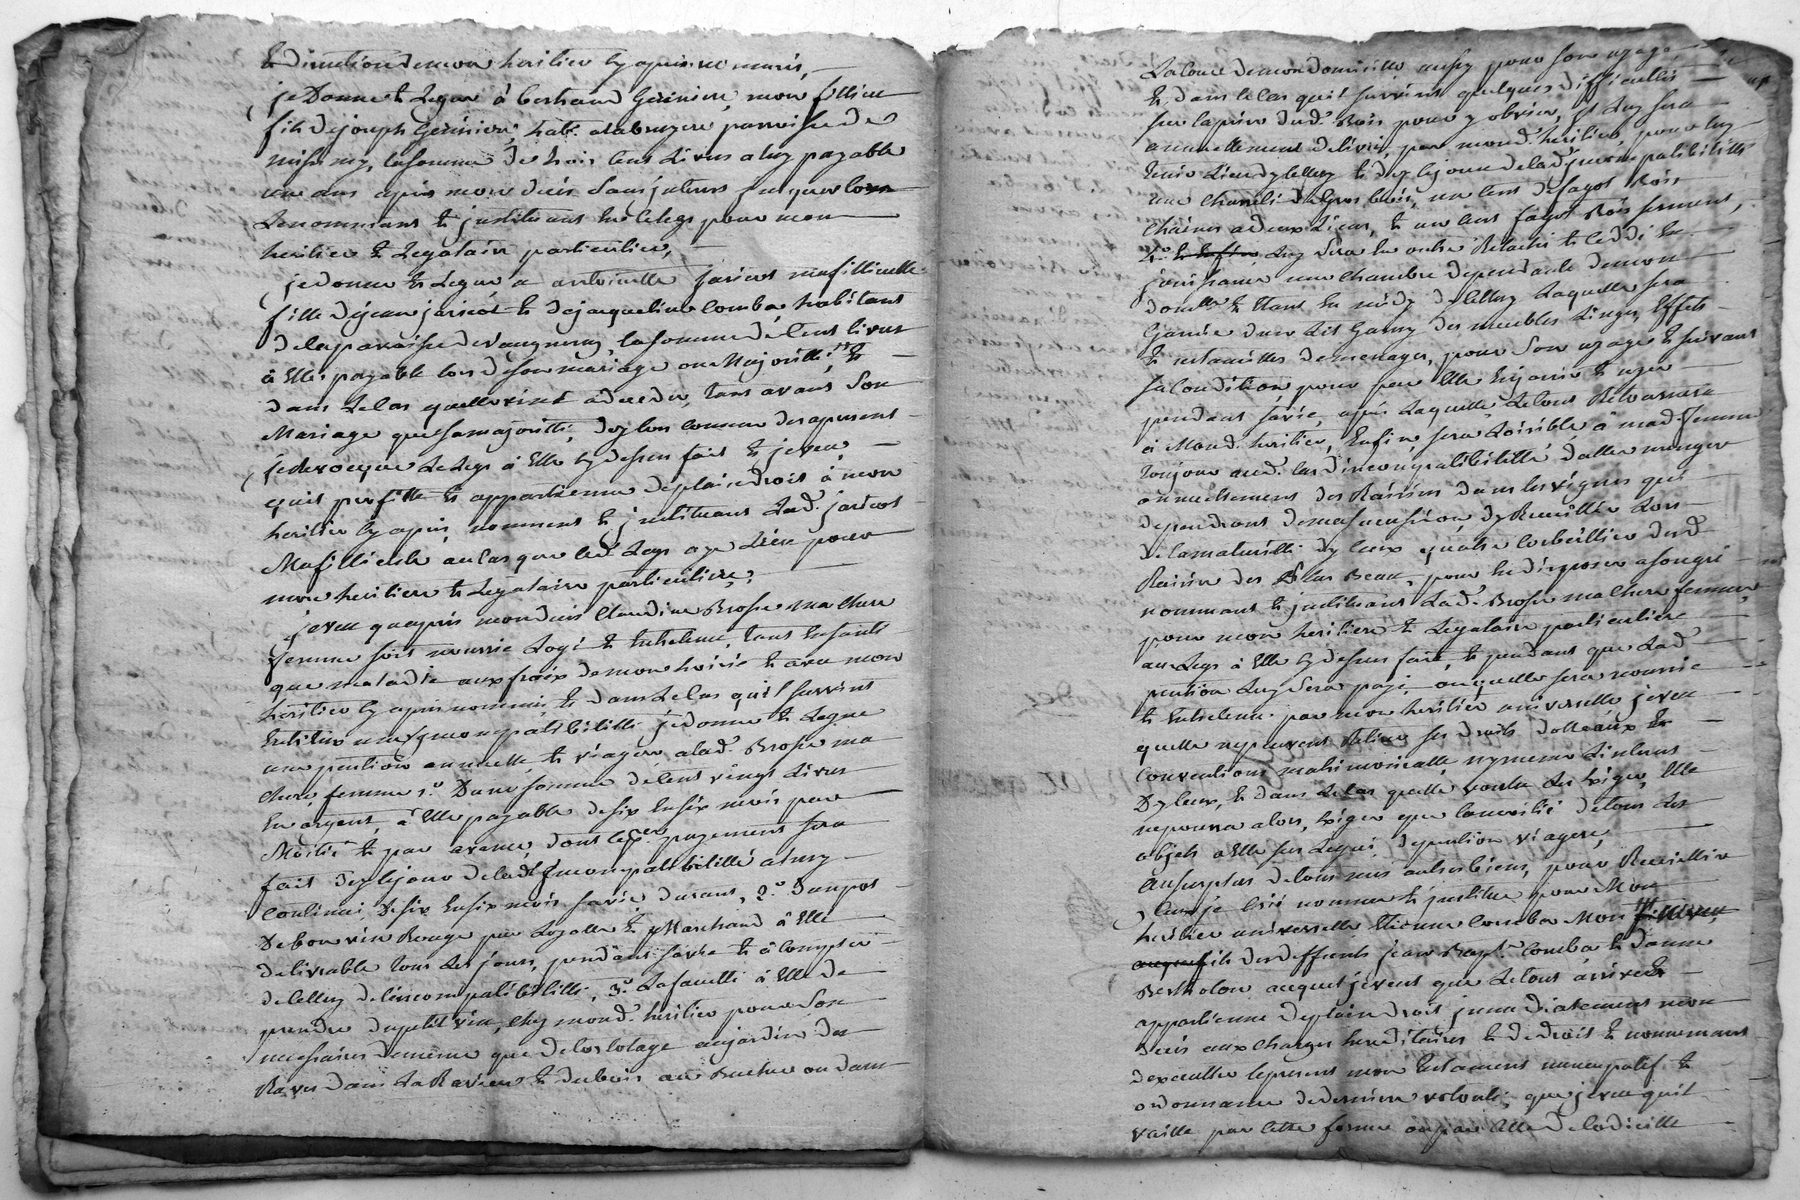 Et direction de mon heritier cy apres nommé,
je Donne et Legue á bertrand Geriniere, mon fillieu
fils de joseph Geriniere, habt. a labruyere parroisse de
missery, la somme de trois cens Livres a luy payable
un ans apres mon deces Sans interets jusqu'alors
Le nommant et jnstituant En ce legs pour mon
heritier et Legataire particulier,
je donne et Legue a antoinette jaricot ma fillieulle
fille de jean jaricot et de jacqueline comba, habitans
de la paroisse de vaugneray, la somme de Cent livres
á Elle payable lors de son mariage ou Majorité, Et
dans Le cas quelle vint a deceder, tant avant Son
Mariage que sa majorité, des lors comme des apresent
je revoque Le Legs á Elle cy dessus fait et je veux
quil profitte et appartienne de plain droit á mon
heritier cy apres, nommant et jnstituant Lad. jaricot
Ma fillieule au cas que led. Legs aye Lieu pour
mon heritiere et Legataire particuliere,
je veux qu'apres mon deces Claudine Brosse ma chere
femme soit nourrie Logé et Entretenue, tant En santé
que maladie aux fraix de mon hoirie et avec mon
heritier cy apres nommé; et dans Le cas qu'il survint
Entr'eux incompatibilitté je donne et Legue
une pention annuelle et viagere a lad. Brosse ma
chere femme 1.° D'une somme de Cent vingt Livres
En argent, á Elle payable de six En six mois par
Moitié et par avance, dont le 1er payement sera
fait des le jour de lad. jncompatibilitté et sera
Continué de six En six mois sa vie durant, 2.° D'un pot
De bon vin Rouge pur Loyalle et Marchand á Elle
delivrable tous Les jours, pendant sa vie et á Compter
de celluy de l'incompatibilitté, 3.° La faculté á Elle de
prendre du petit vin, chez mond. heritier pour Son
necessaire de meme que de l'ortolage au jardin des
Raves dans La Raviere et du bois au Bucher ou dans
La cour de mon domicille aussy pour Son usage,
Et dans le cas qu'il survint quelques difficultés
sur la prise dud. Bois pour y obvier, jl Luy sera
annuellement delivré, par mond. heritier, pour luy
tenir Lieu de celluy et des le jour de lad. jncompatibilitté
une charretée de gros bois, un cent de fagot Bois
Chaînes a deux Liens, et un cent fagot Bois serment,
Luy Sera En outre Relaché et cedé En
jouissance une chambre dependante de mon
domlle et Etant En midy de celluy Laquelle sera
Garnie d'un Lit Garny des meubles Linges Effets
Et ustancilles de menage, pour Son usage Et suivant
sa condition, pour par Elle En jouir Et user
pendant sa vie, apres Laquelle, Le tout Retournera
á Mond. heritier, Enfin, sera Loisible á mad. femme
toujours aud. cas d'incompatibilitté d'aller manger
annuellement des Raisins dans les vignes qui
dependront de ma succession d'y Recuillir Lors
de la maturitté d'y ceux quatre Corbeillées dud.
Raisin des Plus Beau, pour En disposer a son gré
nommant et jnstituant Lad. Brosse ma chere femme
pour mon heritiere et Legataire particuliere
au Legs á Elle cy dessus fait, et pendant que Lad.
pention Luy Sera payé, ou quelle sera nourrie
et Entretenue par mon heritier universelle je veux
quelle ne puisse Retirer ses droits dotteaux Et
Conventions matrimonialle ny meme L'interet
D'y ceux, Et dans Le cas quelle voulut Les Exiger, Elle
ne pourra alors, Exiger que la moitié de tous Les
objets a Elle sus Legué, de pention viagere,
Au surplus de tous mes autres biens, pour Recuillir
Ceux je crée nomme et jnstitue pour Mon
heritier universelle Etienne Comba Mon
fils des deffunts jean Bapt. comba et Jeanne
Bertholon auquel je veux que Le tout arrive Et
appartienne de plain droit jmmediatement mon
deces aux charges hereditaires Et de droit Et nommement
dexecutter le present mon testament nuncupatif et
ordonnance de derniere volonté, que je veux quil
vaille par cette forme ou par celle de Codicille